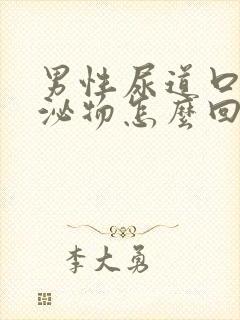 男性尿道口
泌物怎麼回
李大勇